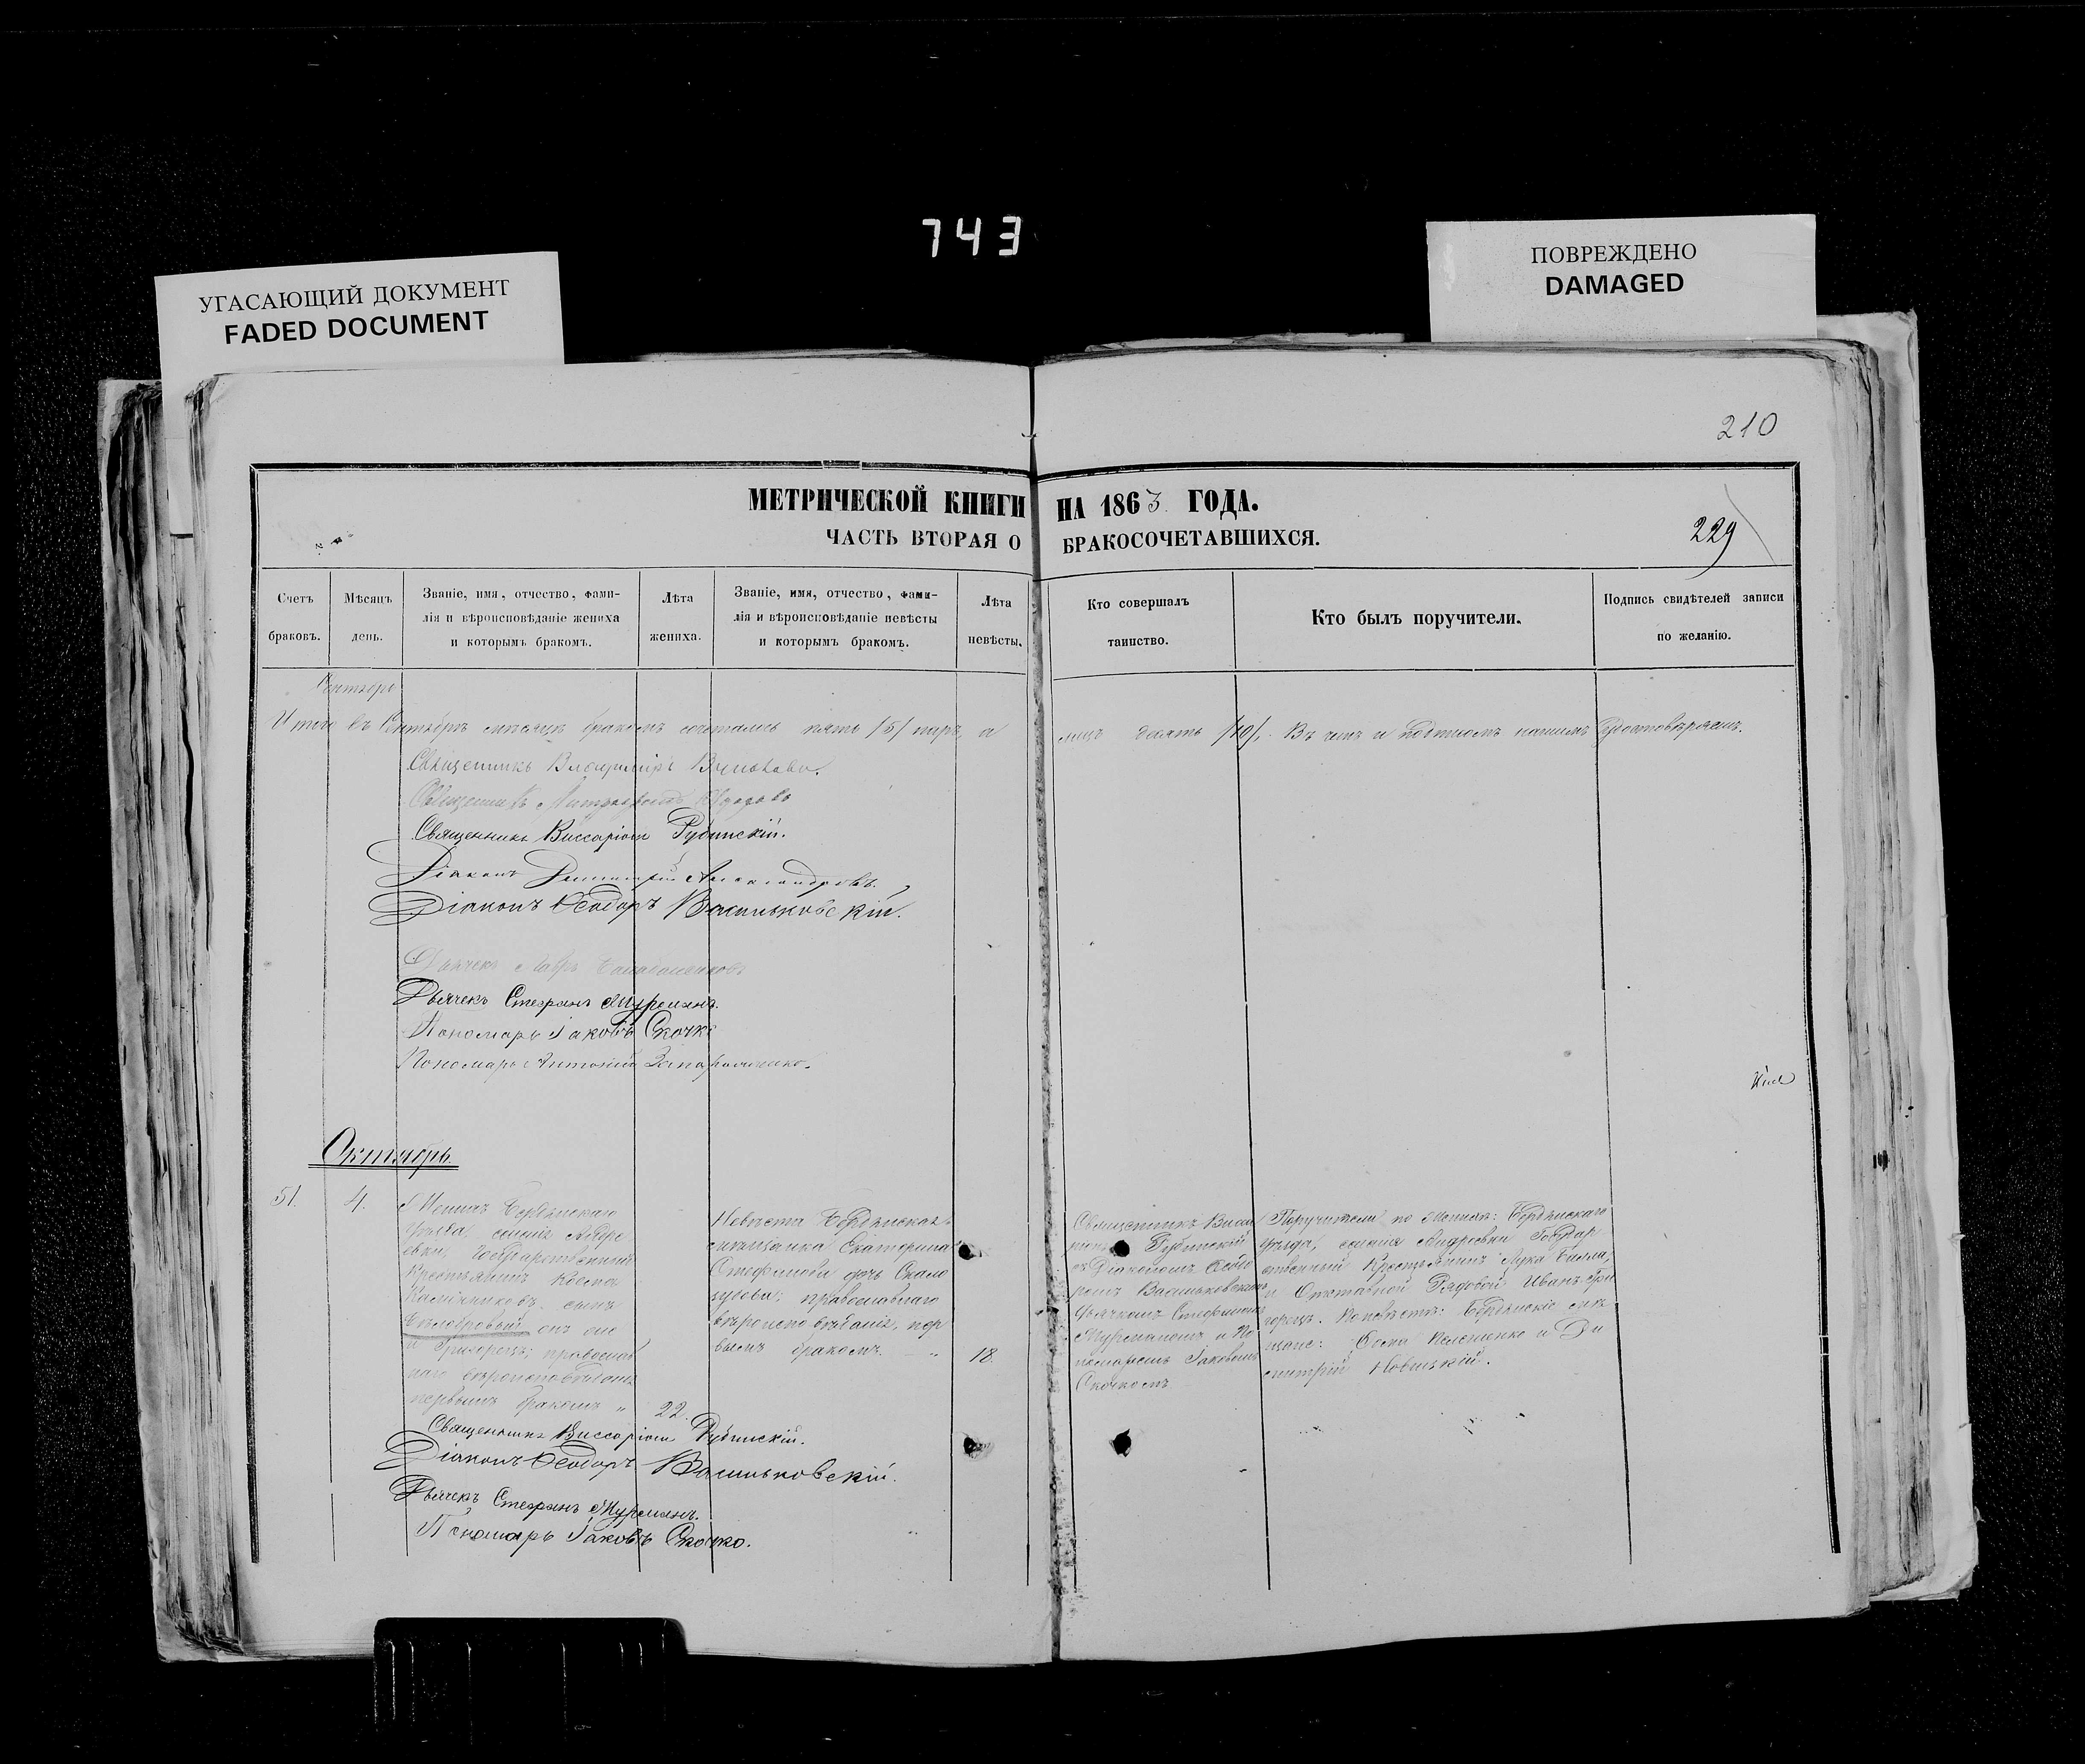 743
УГАСАЮЩИЙ ДОКУМЕНТ
FADED DOCUMENT
ПОВРЕЖДЕНО
DAMAGED
210
МЕТРИЧЕСКОЙ КНИГИ НА 1863 ГОДА.
ЧАСТЬ ВТОРАЯ О БРАКОСОЧЕТАВШИХСЯ.
229
Счетъ браковъ.
Мѣсяцъ день.
Званіе, имя, отчество, фами-
лія и вѣроисповѣданіе жениха
и которымъ бракомъ.
Лѣта жениха.
Званіе, имя, отчество, фами-
лія и вѣроисповѣданіе невѣсты
и которымъ бракомъ.
Лѣта невѣсты.
Кто совершалъ таинство.
Кто былъ поручители.
Подпись свидѣтелей записи по желанію.
Сентябрь
Итого въ Сентябрѣ мѣсяцѣ бракомъ сочетались пять /5/ паръ, а лицъ десять /10/. Въ чемъ и подписомъ нашимъ удостовѣряемъ.
Священникъ Владиміръ
Священникъ
Священникъ Виссаріонъ Рубинскій.
Діаконъ Димитрій Александровъ.
Діаконъ Ѳеодоръ Васильковскій.
Дьячекъ
Дьячекъ Стефанъ Мурманъ.
Пономарь Іаковъ Скочко
Пономарь Антоній
Октябрь.
51. 4.
Женихъ Бердянскаго
уѣзда, селенія Андре
евки, Государственный
Крестьянинъ Косма
сынъ
Бѣлобровый онъ же
и Григорецъ; православ
наго вѣроисповѣданія
первымъ бракомъ " 22.
Невѣста Бердянская
мѣщанка Екатерина
Стефанова дочь Скало
зубова; православнаго
вѣроисповѣданія, пер
вымъ бракомъ. " 18.
Священникъ Висса
ріонъ Рубинскій
съ Діакономъ Ѳеодо
ромъ Васильковскимъ
Дьячкомъ Стефаномъ
Мурманомъ и По
номаремъ Іаковомъ
Скочкомъ
Поручители по Женихѣ: Бердянскаго
уѣзда, селенія Андреевки Государ
ственный Крестьянинъ Лука
и Отставной Рядовой Иванъ Гри
горецъ. По невѣстѣ: Бердянскіе мѣ
щане: и Ди
митрій Новицкій.
Священникъ Виссаріонъ Рубинскій.
Діаконъ Ѳеодоръ Васильковскій.
Дьячекъ Стефанъ Мурманъ.
Пономарь Іаковъ Скочко.